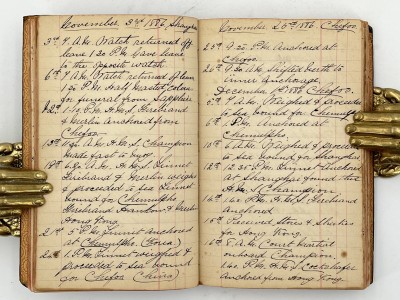 November 3rd 1886, Shanghai
3rd 9 A.M. Watch returned off
leave 1.30 P.M. Gave leave
to the opposite watch
6th 9 A.M. Watch returned off leave
1.30 P.M. Half Masted colours
for funeral from Sapphire
P.M. H.M.S. Firebrand
& Merlin anchored from
Chefoo
13th A.M. H.M.S. Champion
made fast to buoy
18th A.M. H.M.S. Linnet
Firebrand & Merlin weighed
& proceeded to sea Linnet
bound for Chemulpho
Firebrand & Merlin
Hong Kong
21st 5 P.M. Linnet anchored
at Chemulpho (Corea)
24th 1 P.M. Linnet weighed &
proceeded to sea bound
for Chefoo (China)
November 25th 1886 Chefoo
25th P.M. Anchored at
Chefoo
26th 9.30 A.M. Shifted berth to
inner anchorage
December 1886 Chefoo
5th A.M. Weighed & proceeded
to sea bound for Chemulpho
6th P.M. Anchored at
Chemulpho
10th A.M. Weighed & proceeded
to sea bound for Shanghai
13th 12.35 P.M. Linnet anchored
at Shanghai found this
H.M.S. Champion
14th P.M. H.M.S. Firebrand
Anchored
15th Received Stores &
for Hong Kong
16th A.M. Court Martial
onboard Champion
2.40 P.M. H.M.S.
Anchored from Hong Kong